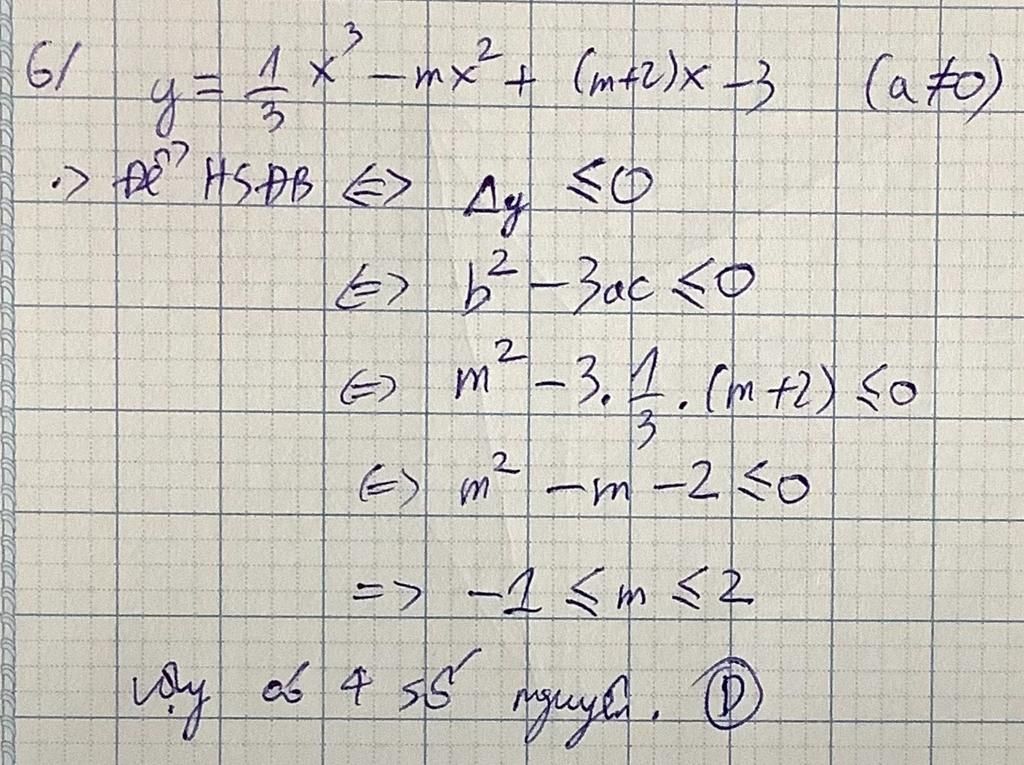 6/ y = 1/3 x³ - mx² + (m+2)x - 3 (a ≠ 0)
.> Để HSĐB <=> Δy ≤ 0
<=> b² - 3ac ≤ 0
<=> m² - 3. 1/3 . (m+2) ≤ 0
<=> m² - m - 2 ≤ 0
=> -1 ≤ m ≤ 2
Vậy có 4 số nguyên. D